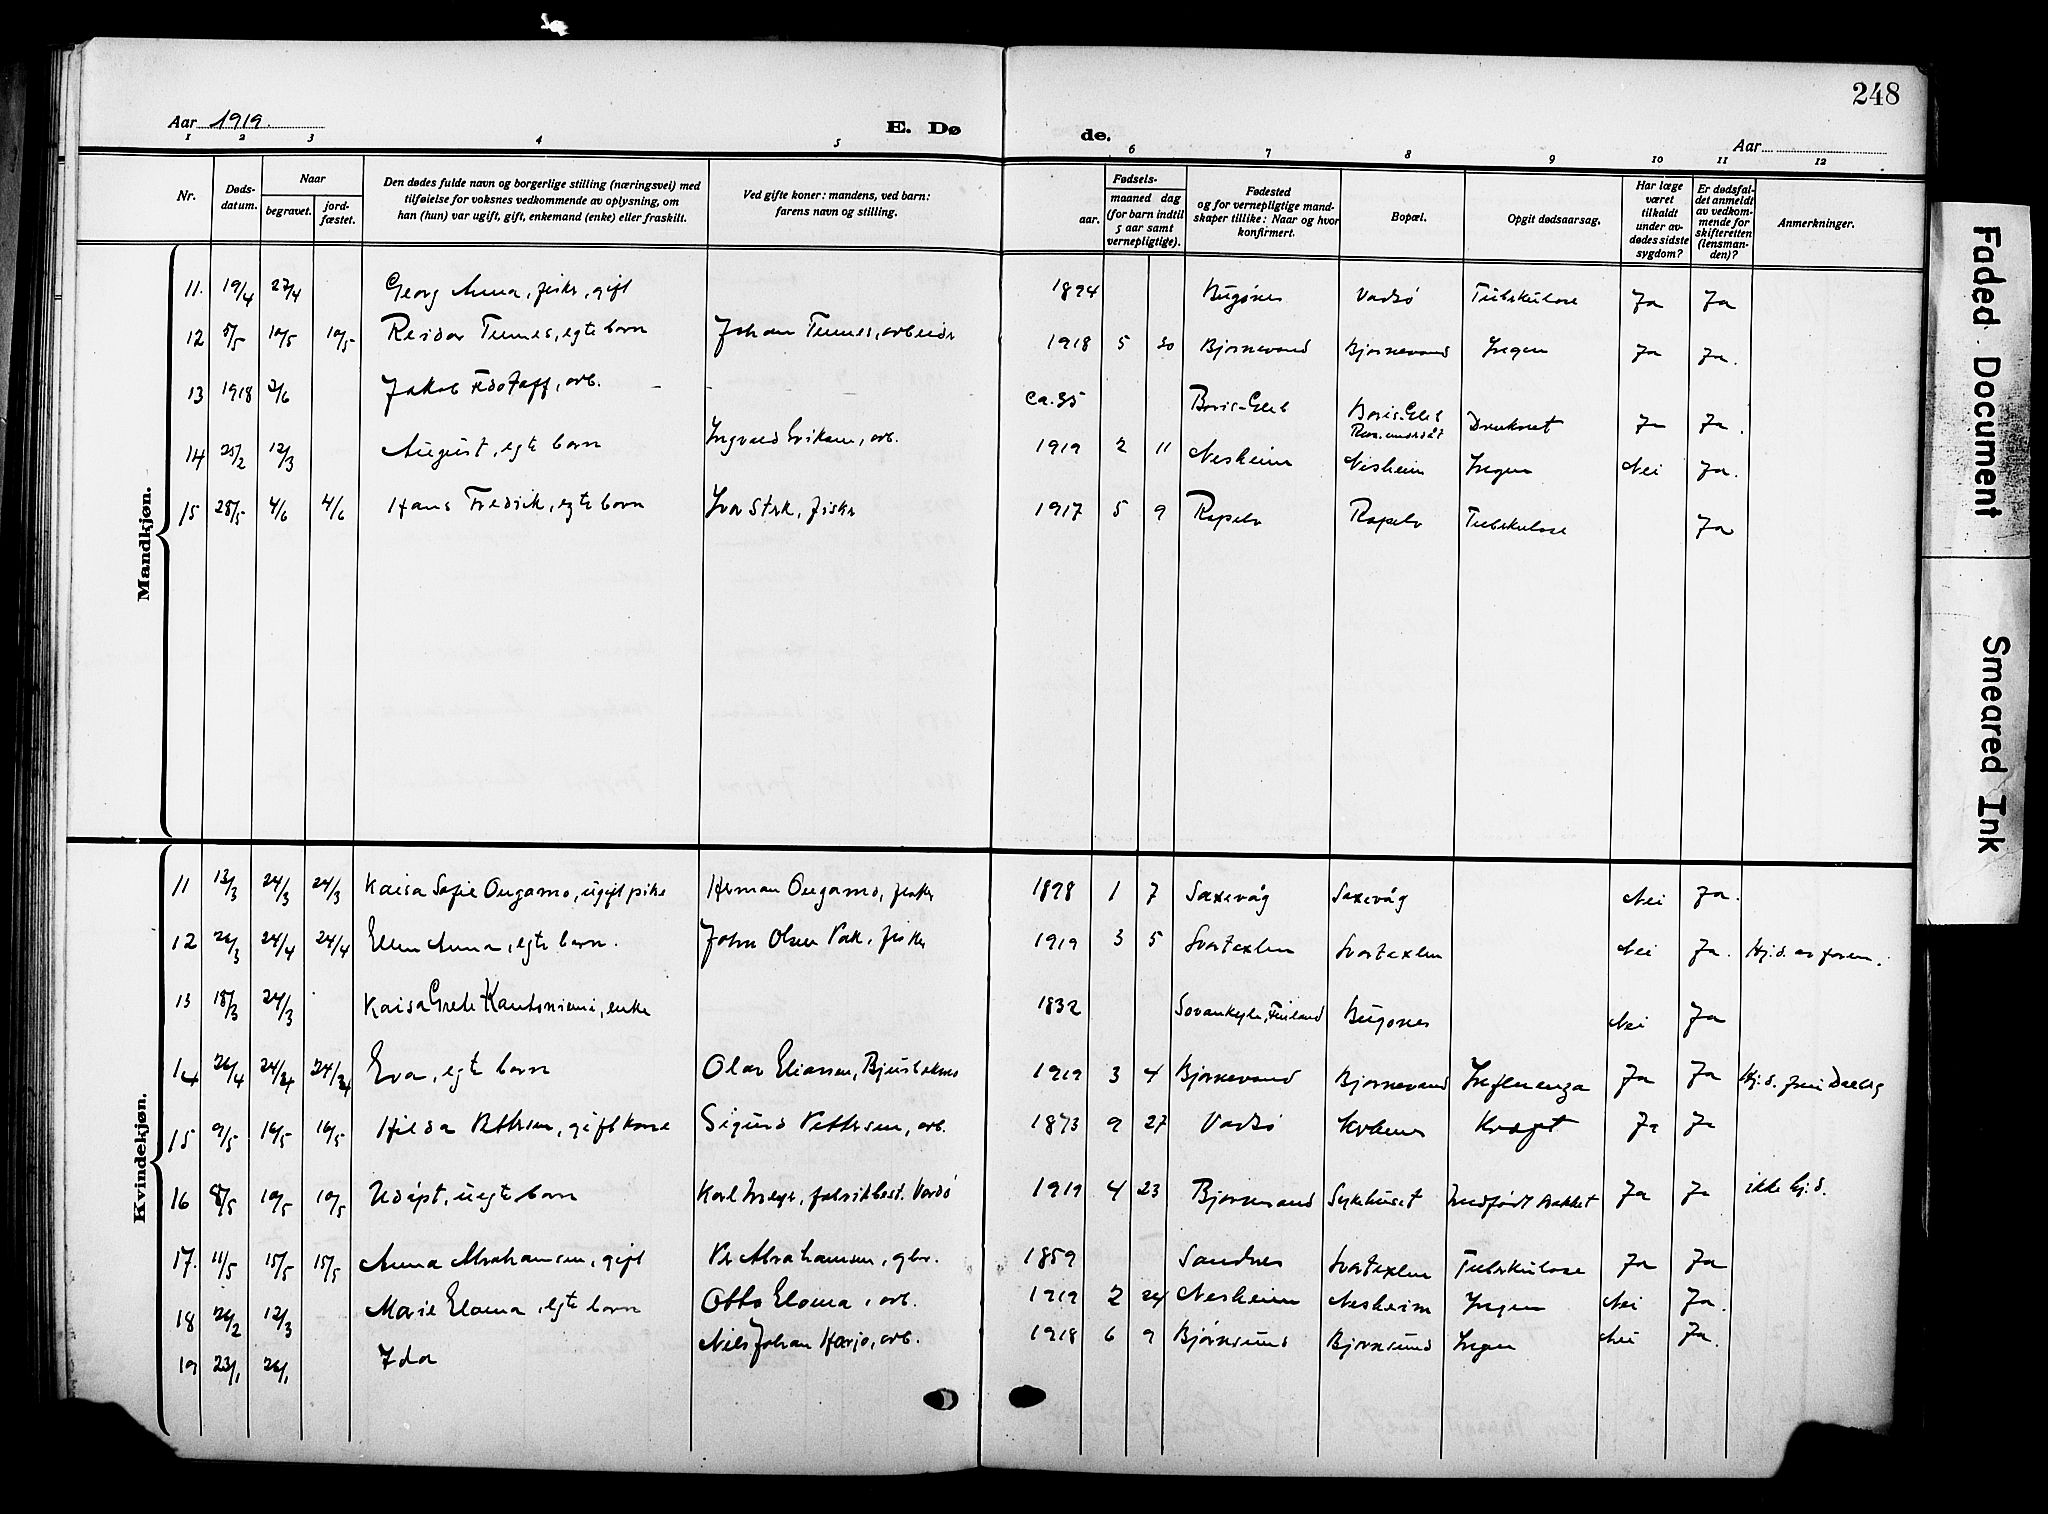 248
Aar 1919.
E. Døde.
Aar
1 2 3 4 5 6 7 8 9 10 11 12
Nr.
Dødsdatum.
Naar
begravet.
jordfæstet.
Den dødes fulde navn og borgerlige stilling (næringsvei) med
tilføielse for voksnes vedkommende av oplysning, om
han (hun) var ugift, gift, enkemand (enke) eller fraskilt.
Ved gifte koner: mandens, ved barn:
farens navn og stilling.
Fødsels-
aar.
maaned dag
(for barn indtil
5 aar samt
vernepligtige).
Fødested
og for vernepligtige mand-
skaper tillike: Naar og hvor
konfirmert.
Bopæl.
Opgit dødsaarsag.
Har læge
været
tilkaldt
under av-
dødes sidste
sygdom?
Er dødsfal-
det anmeldt
av vedkom-
mende for
skifteretten
(lensman-
den)?
Anmerkninger.
Mandkjøn.
11. 19/4 27/4 Georg Anna, fisker, gift 1894 Bugønes Vadsø Tuberkulose Ja Ja
12 5/5 10/5 10/5 Reidar Tennes, egte barn Johan Tennes, arbeider 1918 5 30 Bjørnevand Bjørnevand Ingen Ja Ja.
13 1918 2/6 Jakob, arb. - - ca. 35 Boris-Gleb Boris-Gleb Druknet Ja Ja.
14 25/2 12/3 August, egte barn Ingvald Eriksen, arb. 1919 2 11 Nesheim Nesheim Ingen Nei Ja.
15 28/5 4/6 4/6 Hans Fredrik, egte barn Ivar, fisker 1917 5 9 Ropelv Ropelv Tuberkulose Ja
Kvindekjøn.
11 13/3 24/3 24/3 Kaisa Sofie Ongamo, ugift pike Herman Ongamo, fisker 1898 1 7 Saxevåg Saxevåg Nei Ja.
12 26/3 24/4 24/4 Ellen Anna, egte barn. John Olsen, fisker 1919 3 5 Svartaxlen Svartaxlen Nei Ja. Hj.d. av faren.
13 18/3 24/3 Kaisa Grete Kantoniemi, enke 1832 Sovankyle, Finland Bugønes Nei Ja
14 26/4 24/4 24/4 Eva, egte barn Olav Eliassen, 1919 3 4 Bjørnevand Bjørnevand Influenza Ja Ja Hj.d.
15 9/5 16/5 16/5 Hilda Pettersen, gift kone Sigurd Pettersen, arb. 1873 9 27 Vadsø Kirkenes Kræft Ja Ja
16 8/5 10/5 10/5 Udøpt, uegte barn Karl, fabrikbest. Vardø 1919 4 23 Bjørnevand Sykehuset Medfødt svakhet Ja Ja ikke hj.d.
17. 11/5 15/5 15/5 Anna Abrahamsen, gift Per Abrahamsen, gbr. 1859 Sandnes Svartaxlen Tuberkulose Ja Ja
18 26/2 12/3 Marie Eloma, egte barn Otto Eloma, arb. 1919 2 24 Nesheim Nesheim Ingen Nei Ja.
19 23/1 26/1 Ida Nils Johan Harjo, arb. 1918 6 9 Bjørnsund Bjørnsund Ingen Nei Ja.
Faded Document
Smeared Ink